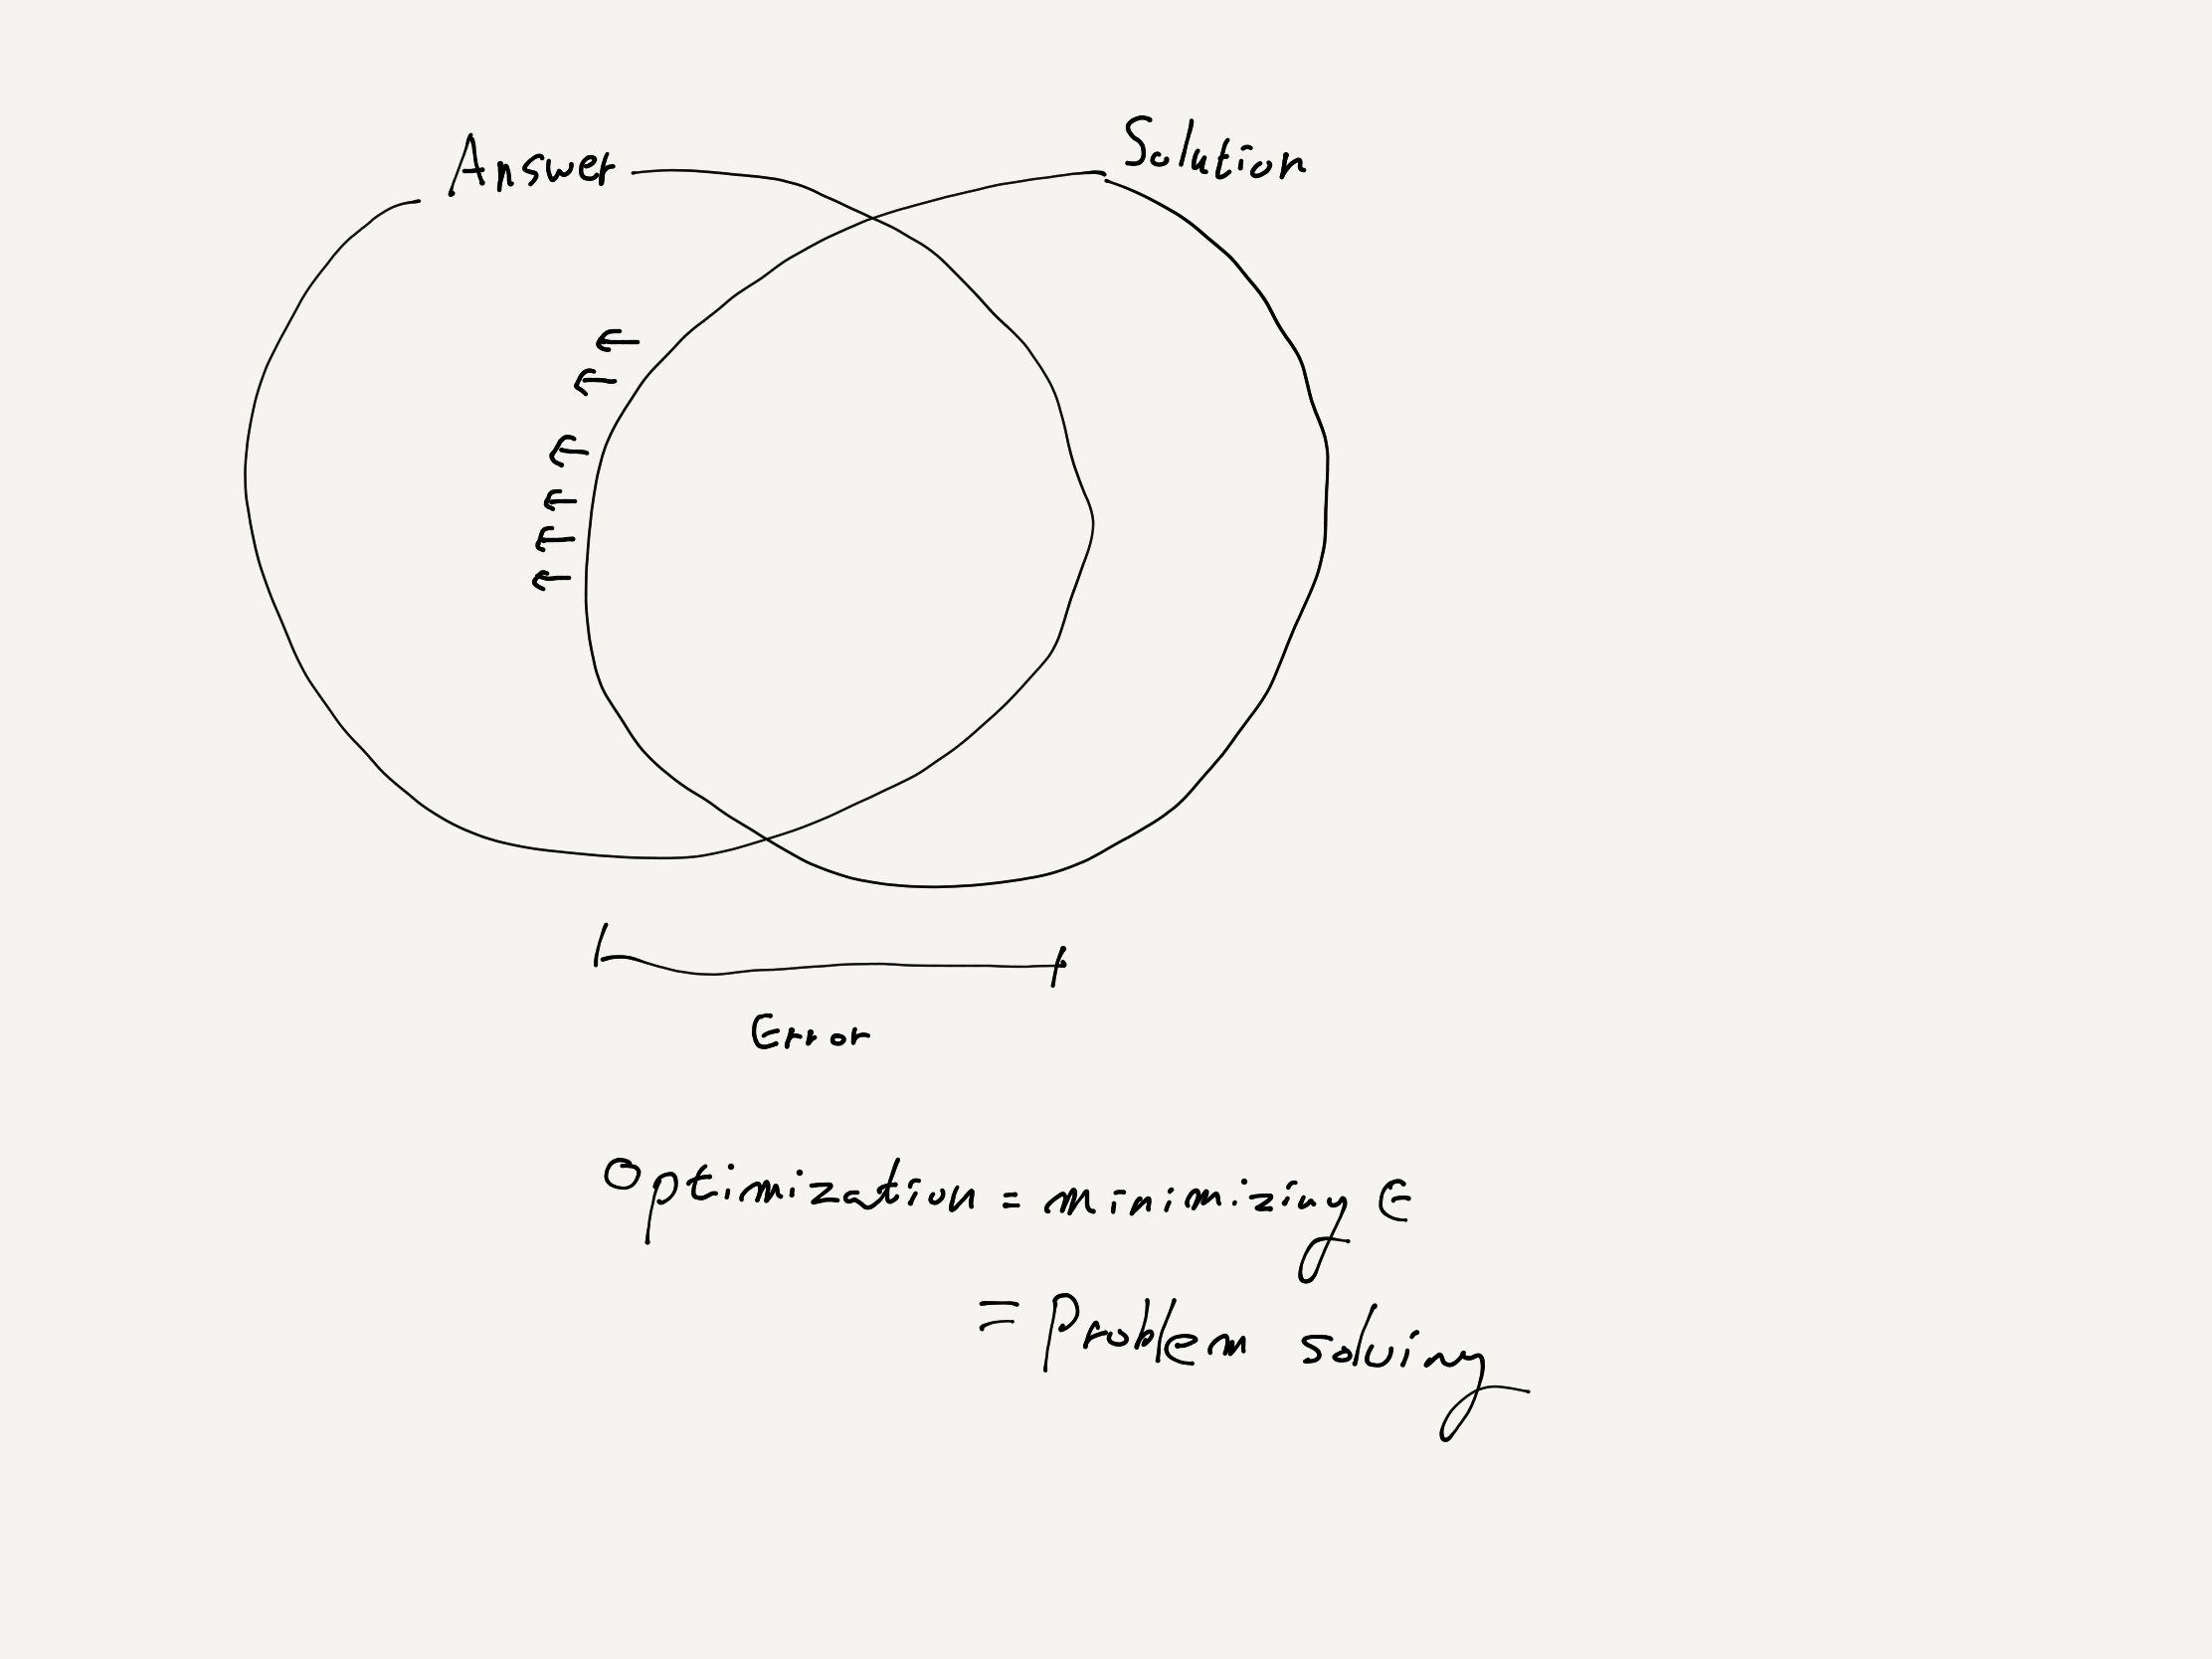 Answer
Solution
Error
Optimization = minimizing ∈
= Problem solving